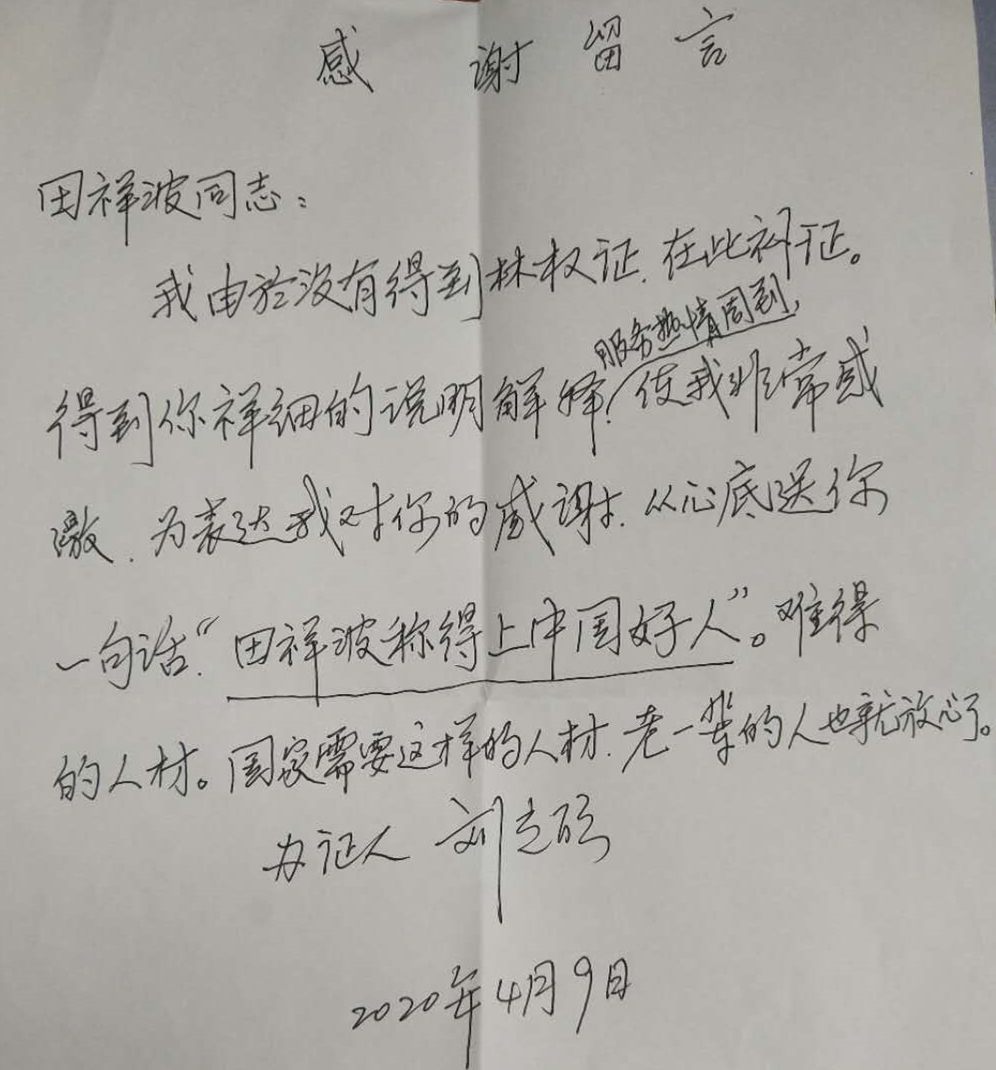 感谢留言
田祥波同志：
我由於没有得到林权证.在此补证。
服务热情周到,
得到你祥细的说明解释.使我非常感
激.为表达我对你的感谢.从心底送你
一句话“田祥波称得上中国好人”。难得
的人材。国家需要这样的人材.老一辈的人也就放心了。
办证人 刘
2020年4月9日